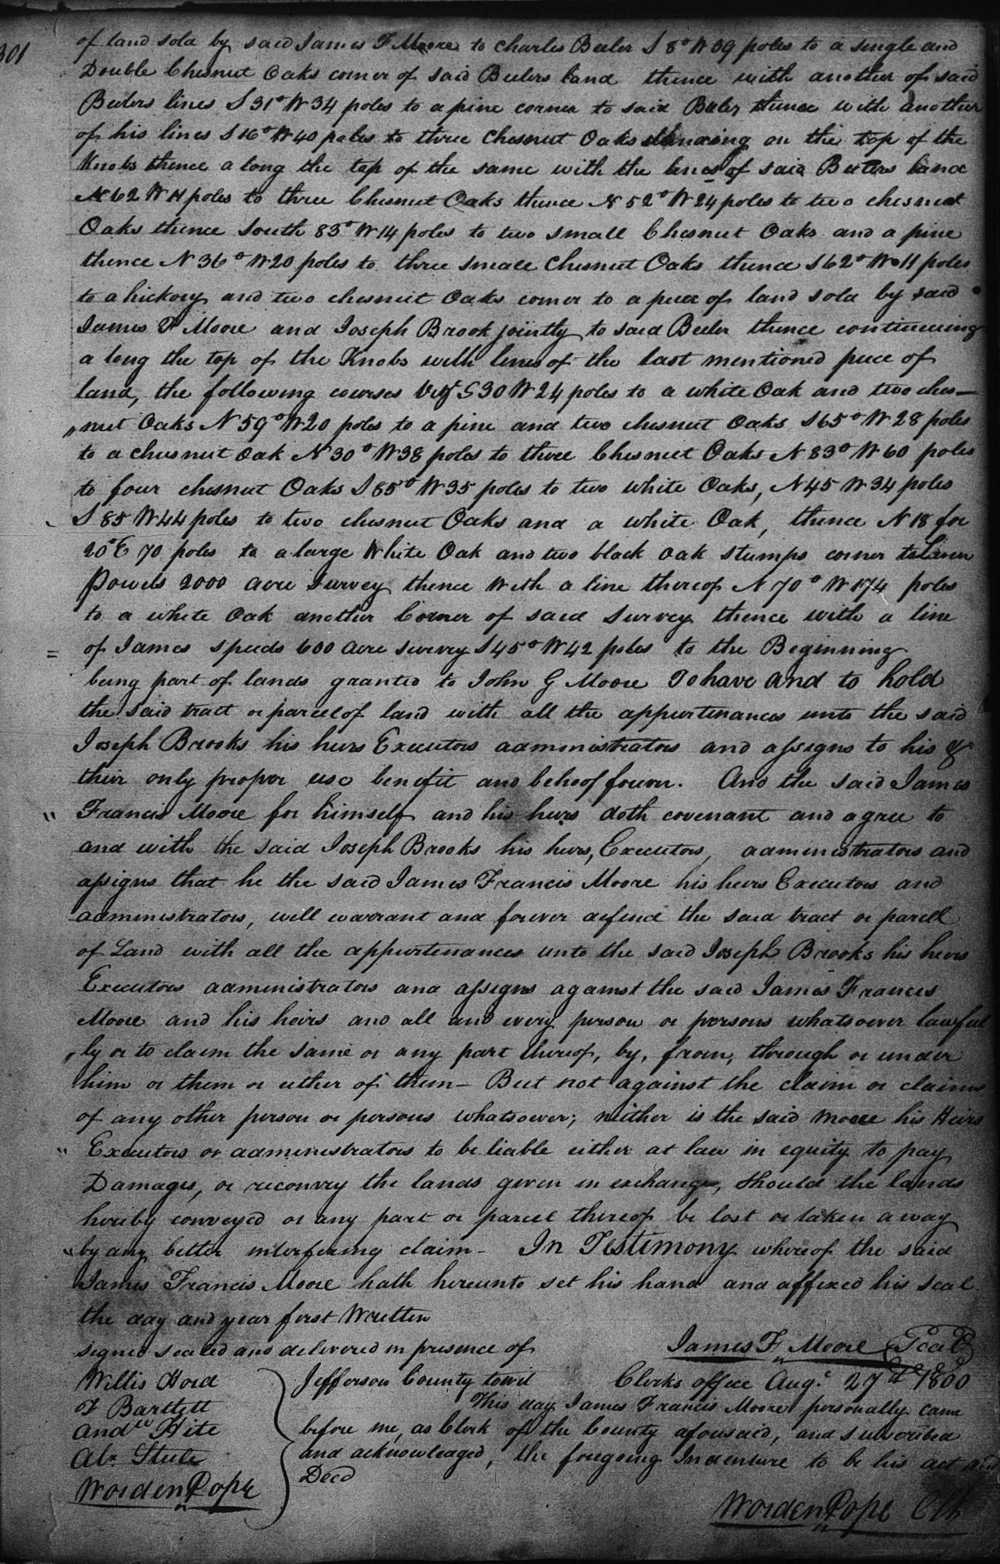 301
of land sold by said James F Moore to Charles Beeler S 8° W 39 poles to a single and
Double Chesnut Oaks corner of said Beelers land thence with another of said
Beelers lines S 31° W 34 poles to a pine corner to said Beeler thence with another
of his lines S 16° W 40 poles to three Chesnut Oaks standing on the top of the
Knobs thence a long the top of the same with the lines of said Beelers land
N 62 W 11 poles to three Chesnut Oaks thence N 52° W 24 poles to two chesnut
Oaks thence South 83° W 14 poles to two small Chesnut Oaks and a pine
thence N 36° W 20 poles to three small Chesnut Oaks thence S 62° W 11 poles
to a hickory and two chesnut Oaks corner to a peice of land sold by said
James F Moore and Joseph Brook jointly to said Beeler thence continueing
a long the top of the Knobs with lines of the last mentioned peice of
land, the following courses Viz S 30 W 24 poles to a white Oak and two ches-
nut Oaks N 59° W 20 poles to a pine and two chesnut Oaks S 65° W 28 poles
to a chesnut Oak N 30° W 38 poles to three Chesnut Oaks N 83° W 60 poles
to four chesnut Oaks S 85° W 35 poles to two white Oaks, N 45 W 34 poles
S 85 W 44 poles to two chesnut Oaks and a white Oak, thence N 18 for
20° E 70 poles to a large White Oak and two black oak stumps corner to
Powels 2000 acre Survey thence With a line thereof N 70° W 174 poles
to a white Oak another Corner of said Survey thence with a line
of James speeds 600 Acre survey S 45° W 42 poles to the Beginning
being part of lands granted to John G Moore To have and to hold
the said tract or parcel of land with all the appurtenances unto the said
Joseph Brooks his heirs Executors administrators and assigns to his &
their only proper use benefit and behoof forever. And the said James
Francis Moore for himself and his heirs doth covenant and agree to
and with the said Joseph Brooks his heirs, Executors, administrators and
assigns that he the said James Francis Moore his heirs Executors and
administrators, will warrant and forever defend the said tract or parcell
of Land with all the appurtenances unto the said Joseph Brooks his heirs
Executors administrators and assigns against the said James Francis
Moore and his heirs and all and every person or persons whatsoever lawful
ly or to claim the same or any part thereof, by, from, through or under
him or them or either of them - But not against the claim or claims
of any other person or persons whatsoever; neither is the said Moore his Heirs
Executors or administrators to be liable either at law in equity to pay
Damages, or reconvey the lands given in exchange, should the lands
hereby conveyed or any part or parcel thereof be lost or taken away
by any better interfering claim - In Testimony whereof the said
James Francis Moore hath hereunto set his hand and affixed his seal
the day and year first Written
signed sealed and delivered in presence of James F Moore Seal
Willis Hord
T Bartlett
Andw Hite
Ab. Steele
Worden Pope
Jefferson County towit Clerks office Augt 27th 1800
This day James Francis Moore personally came
before me, as Clerk of the County aforesaid, and subscribed
and acknowledged, the foregoing Indenture to be his act and
Deed
Worden Pope Clk